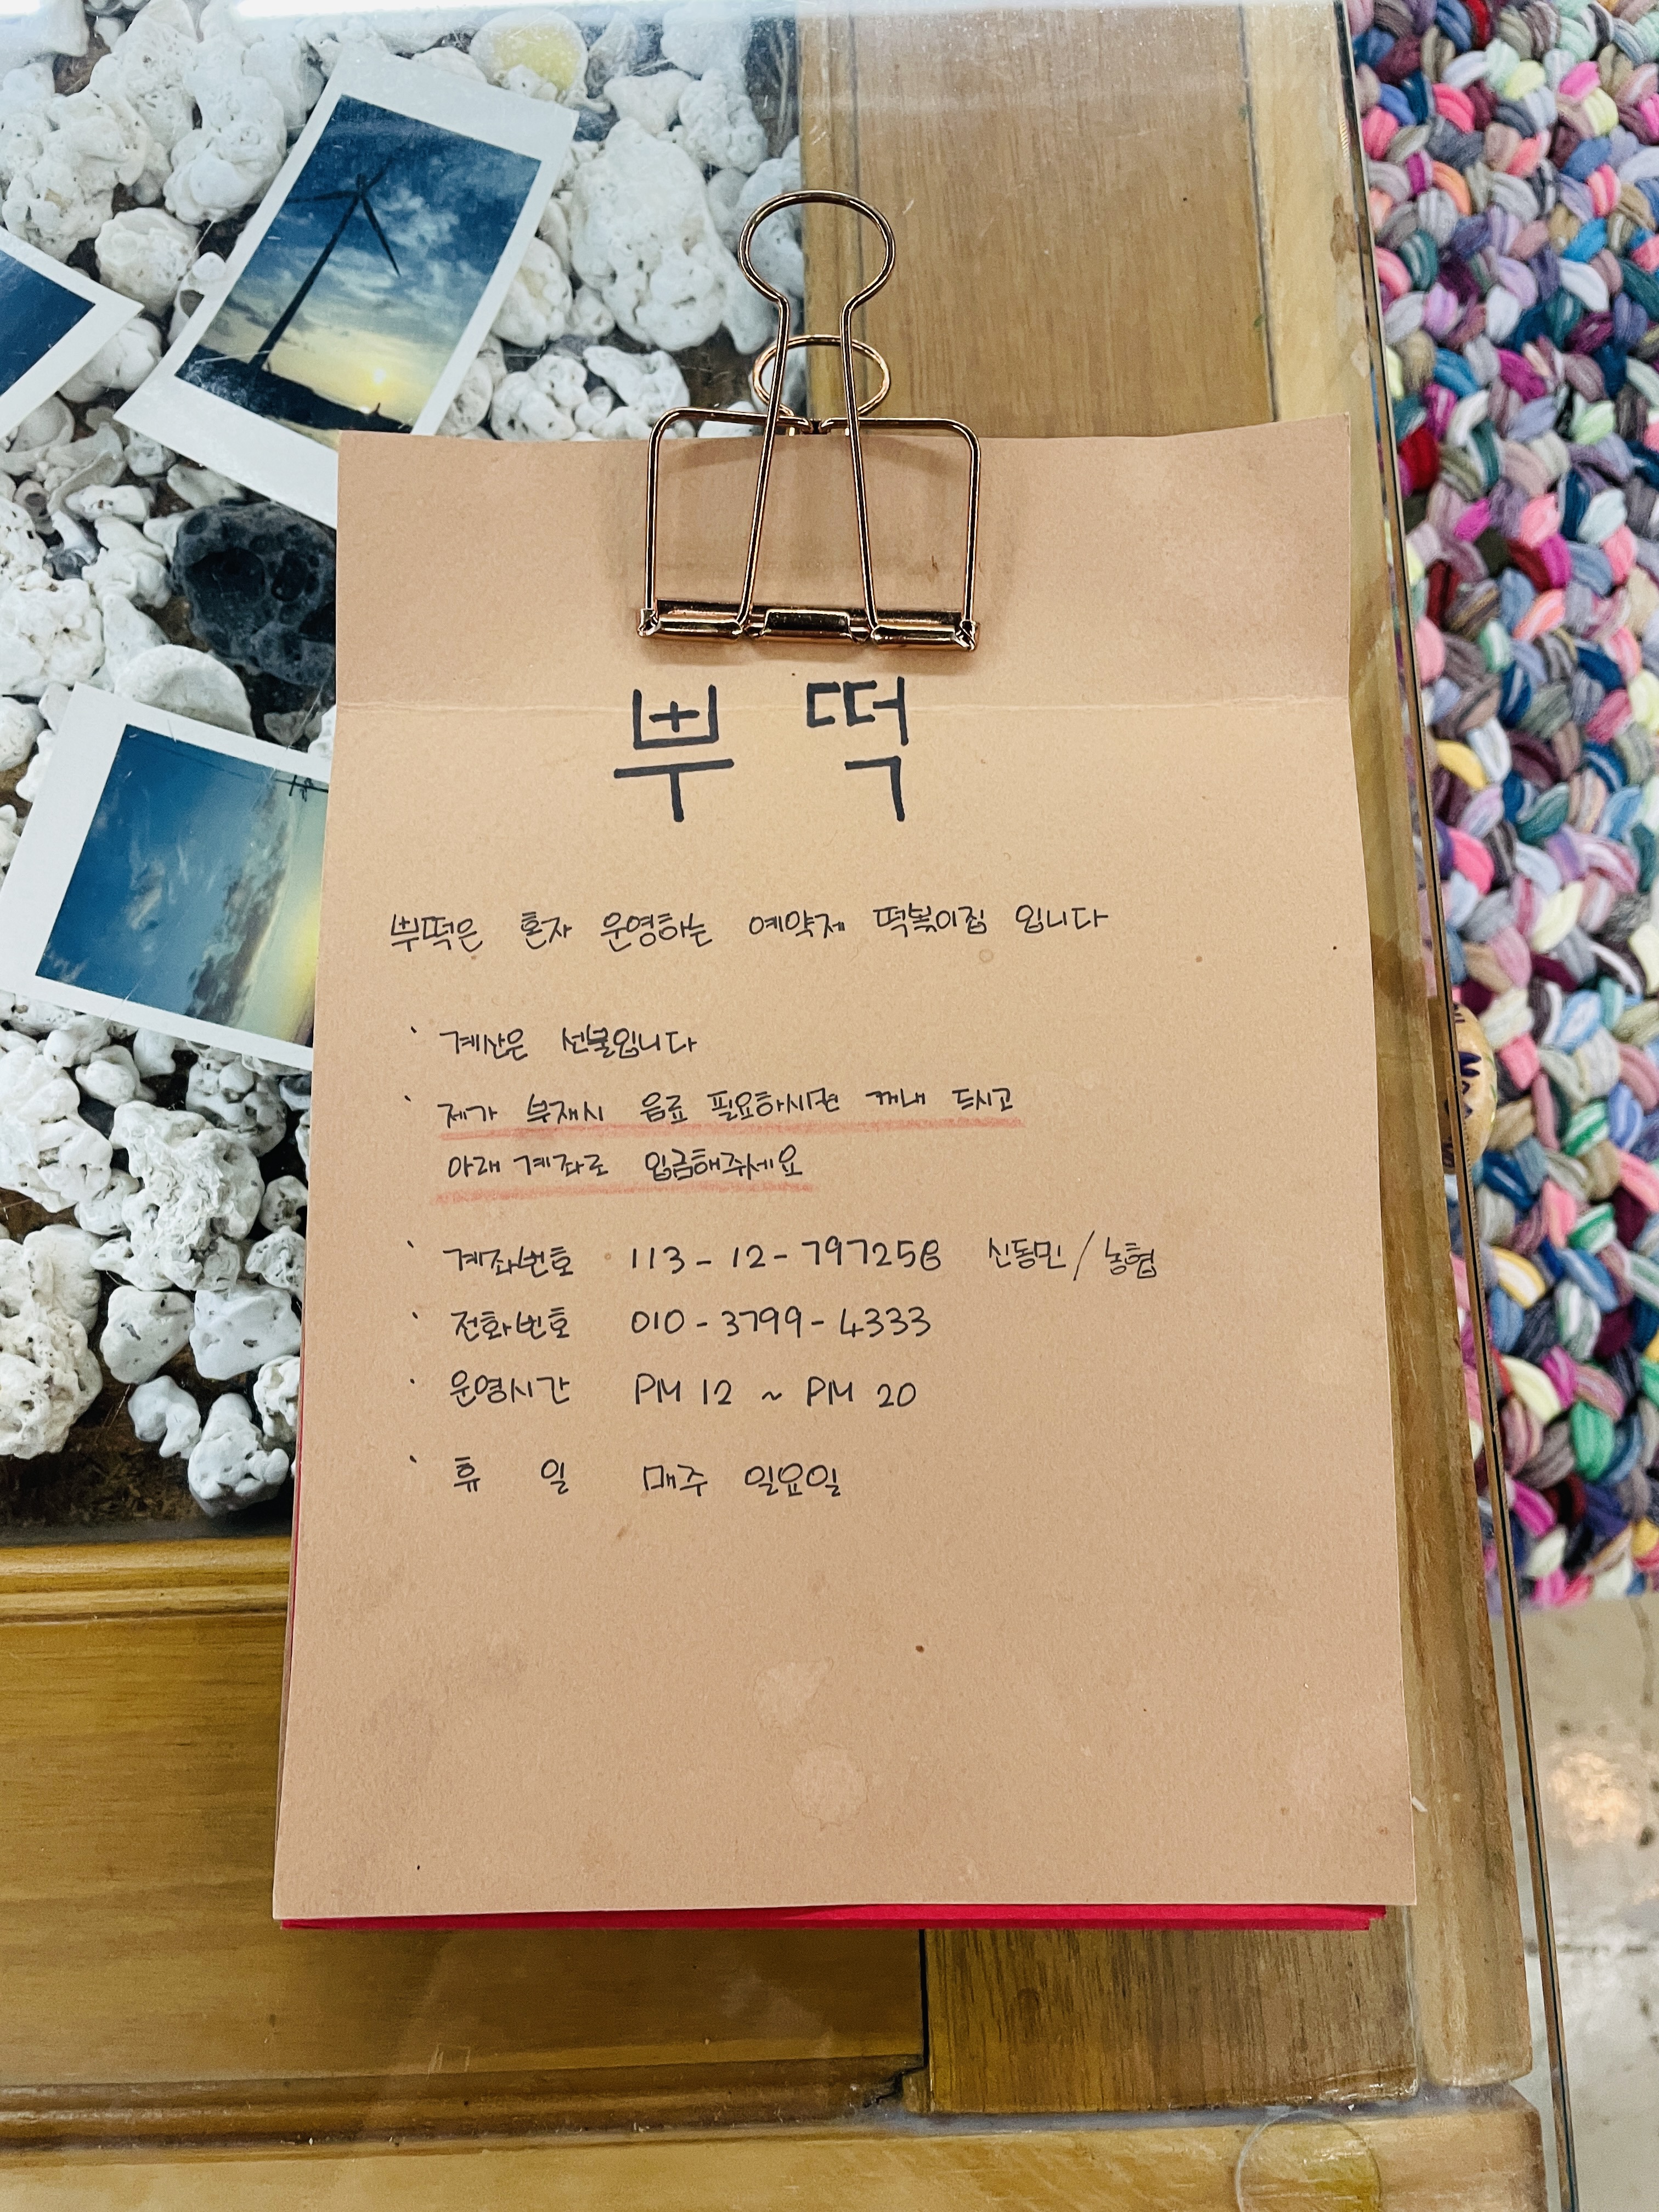 뿌떡
뿌떡은 혼자 운영하는 예약제 떡볶이집 입니다
· 계산은 선불입니다
· 제가 부재시 음료 필요하시면 꺼내 드시고
아래 계좌로 입금해주세요
· 계좌번호 113-12-797258 신동민/농협
· 전화번호 010-3799-4333
· 운영시간 PM 12 ~ PM 20
· 휴 일 매주 일요일